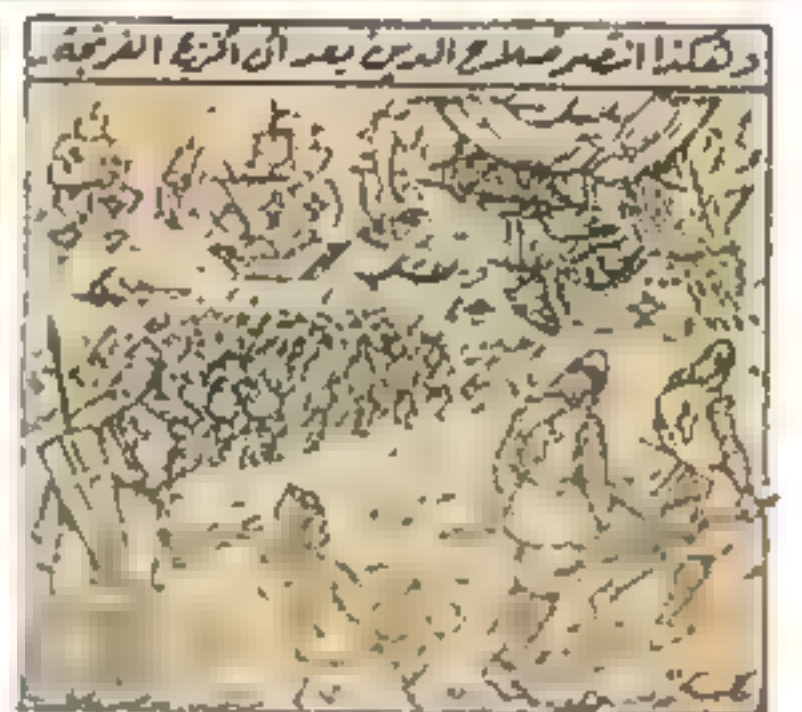 وهكذا انتصر صلاح الدين بعد أن الفرنجة